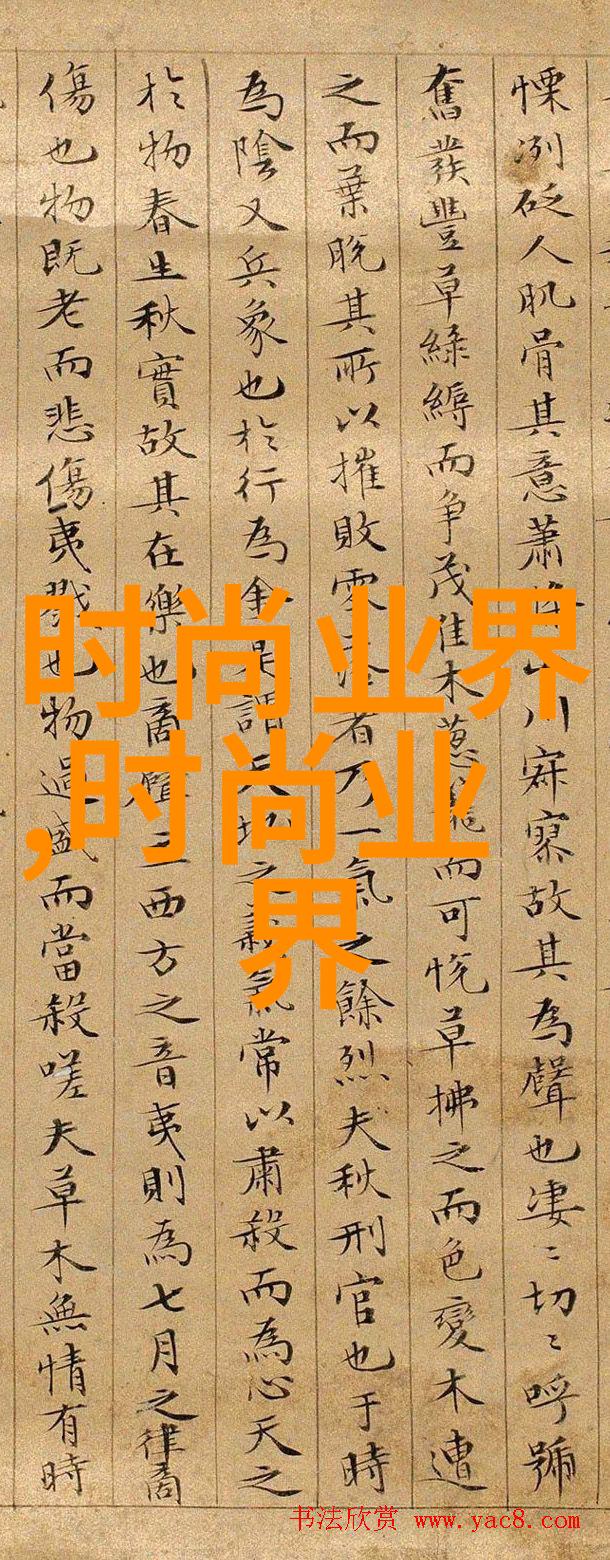 慄冽砭人肌骨其意蕭條山川寂寥故其為聲也淒〻切〻呼號
奮發豐草綠縟而争茂佳木葱蘢而可悅草拂之而色變木遭
之而葉脫其所以摧敗零落者乃一氣之餘烈夫秋刑官也于時
為陰又兵象也於行為金是謂天地之義氣常以肅殺而為心天之
於物春生秋實故其在樂也商聲主西方之音夷則為七月之律商
傷也物既老而悲傷夷戮也物過盛而當殺嗟夫草木無情有時
时尚业界
,时尚业
界
书法欣赏 www.yac8.com